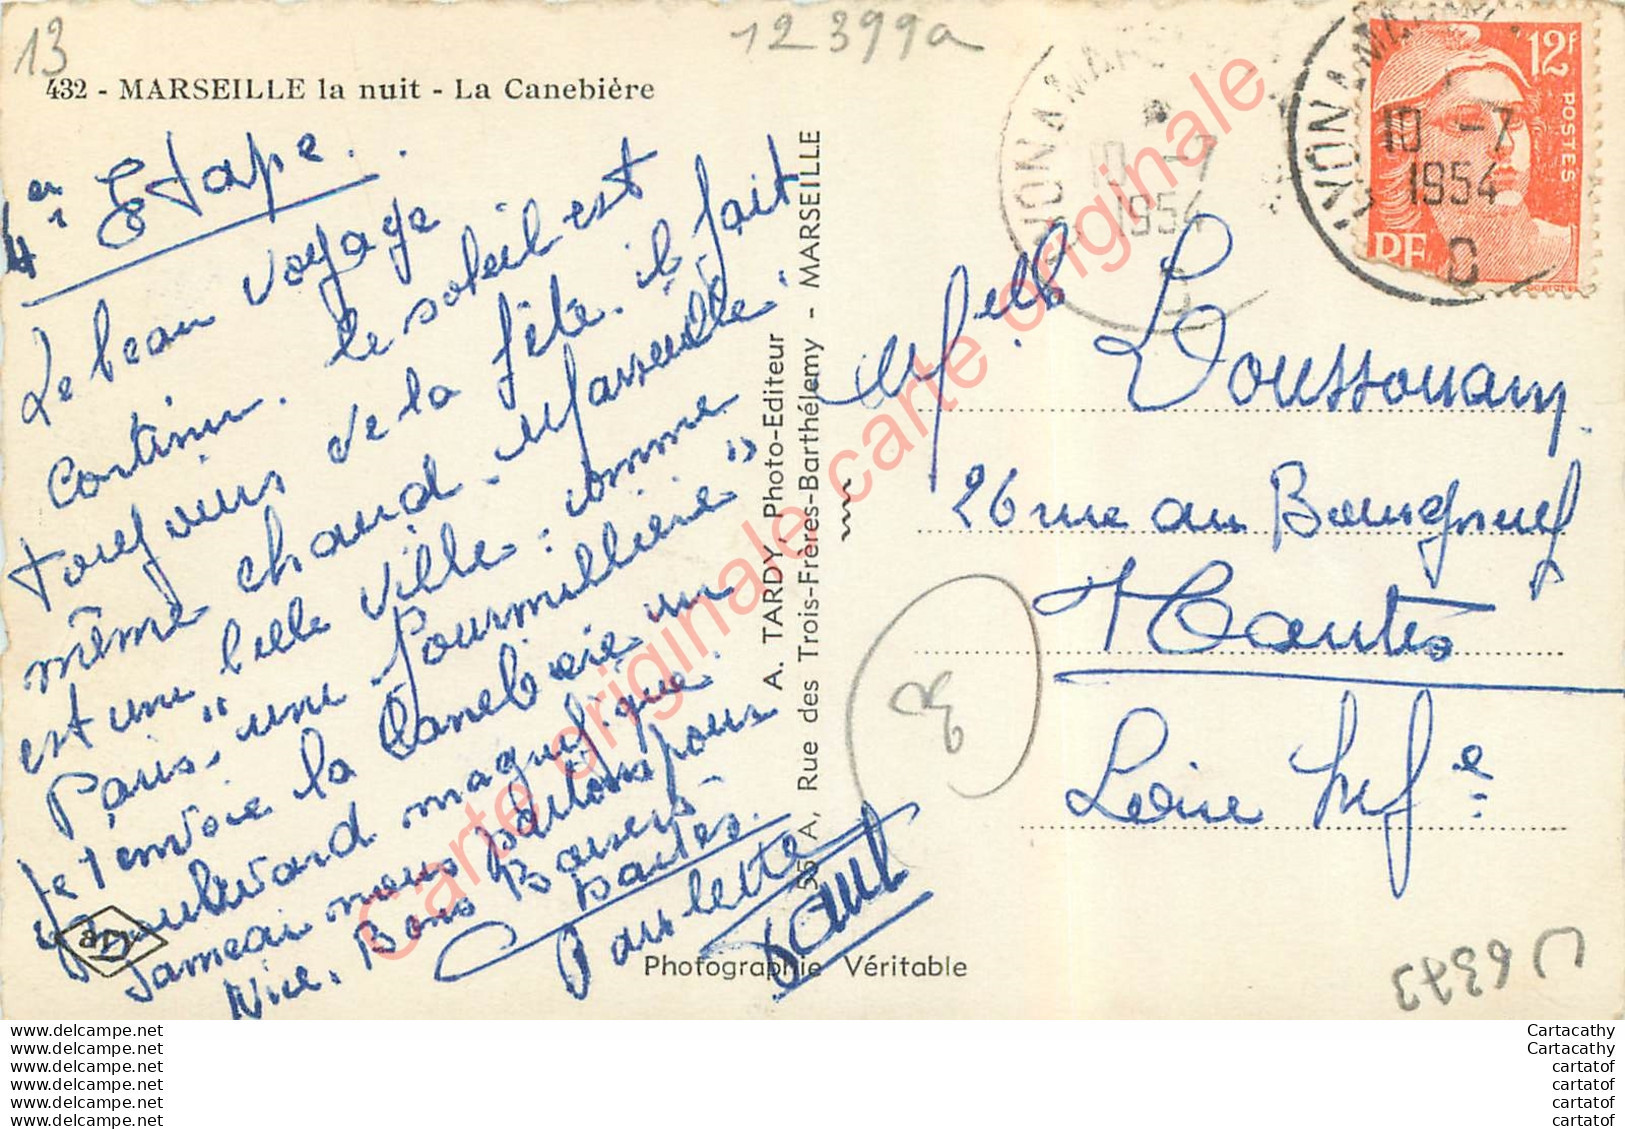 13
12399a
432 - MARSEILLE la nuit - La Canebière
4er Etape.
Le beau voyage
continu. le soleil est
toujours de la fête. il fait
même chaud. Marseille
est une belle ville : comme
Paris "une fourmilliere"
Je t'envoie la Canebiere un
boulevard magnifique.
nous partons pour
Nice. Bons Baisers
à toutes.
Paulette
Paul
A. TARDY, Photo-Editeur
35 A, Rue des Trois-Frères-Barthélemy - MARSEILLE
Photographie Véritable
LYON A MARSEILLE
10 -7
1954
D
LYON A MARSEILLE
10 -7
1954
D
12F
POSTES
RF
Melle Toussouam
26 rue du Bourgneuf
Nantes
Loire Infe
30
U 6373
Carte originale carte originale carte originale
www.delcampe.net
www.delcampe.net
www.delcampe.net
www.delcampe.net
www.delcampe.net
www.delcampe.net
Cartacathy
Cartacathy
cartatof
cartatof
cartatof
cartatof